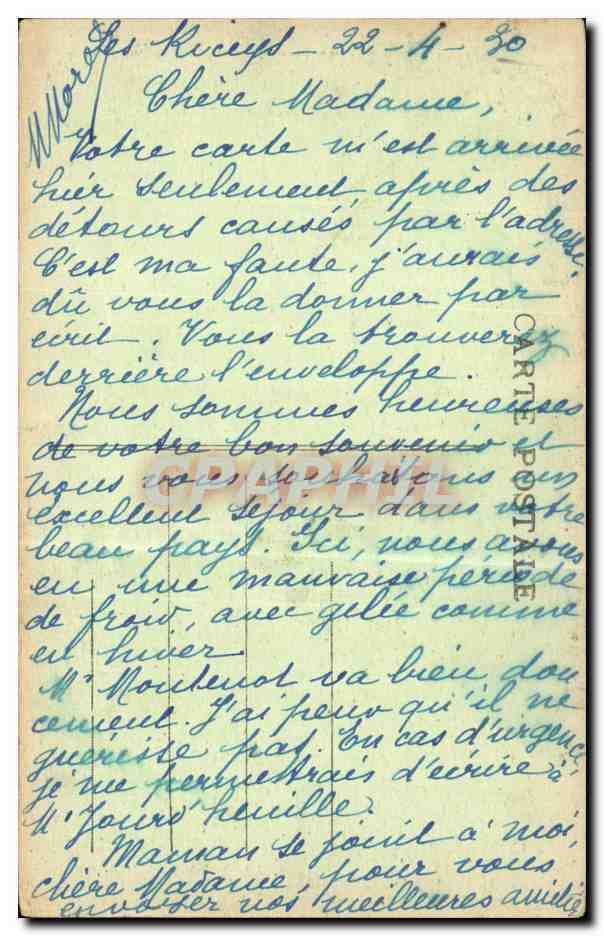 Les Riceys - 22-4-30
Chère Madame,
Votre carte m'est arrivée
hier seulement après des
détours causés par l'adresse.
C'est ma faute, j'aurais
dû vous la donner par
écrit. Vous la trouverez
derrière l'enveloppe.
Nous sommes heureuses
de votre bon souvenir et
nous vous souhaitons un
excellent séjour dans votre
beau pays. Ici, nous avons
eu une mauvaise période
de froid, avec gelée comme
en hiver
Mr Montenot va bien dou
cement. J'ai peur qu'il ne
guérisse pas. En cas d'urgence
je me permettrais d'écrire à
Mr Jourd'heuille.
Maman se joint à moi,
chère Madame, pour vous
envoyer nos meilleures amitiés
CARTE POSTALE
CPAPHIL